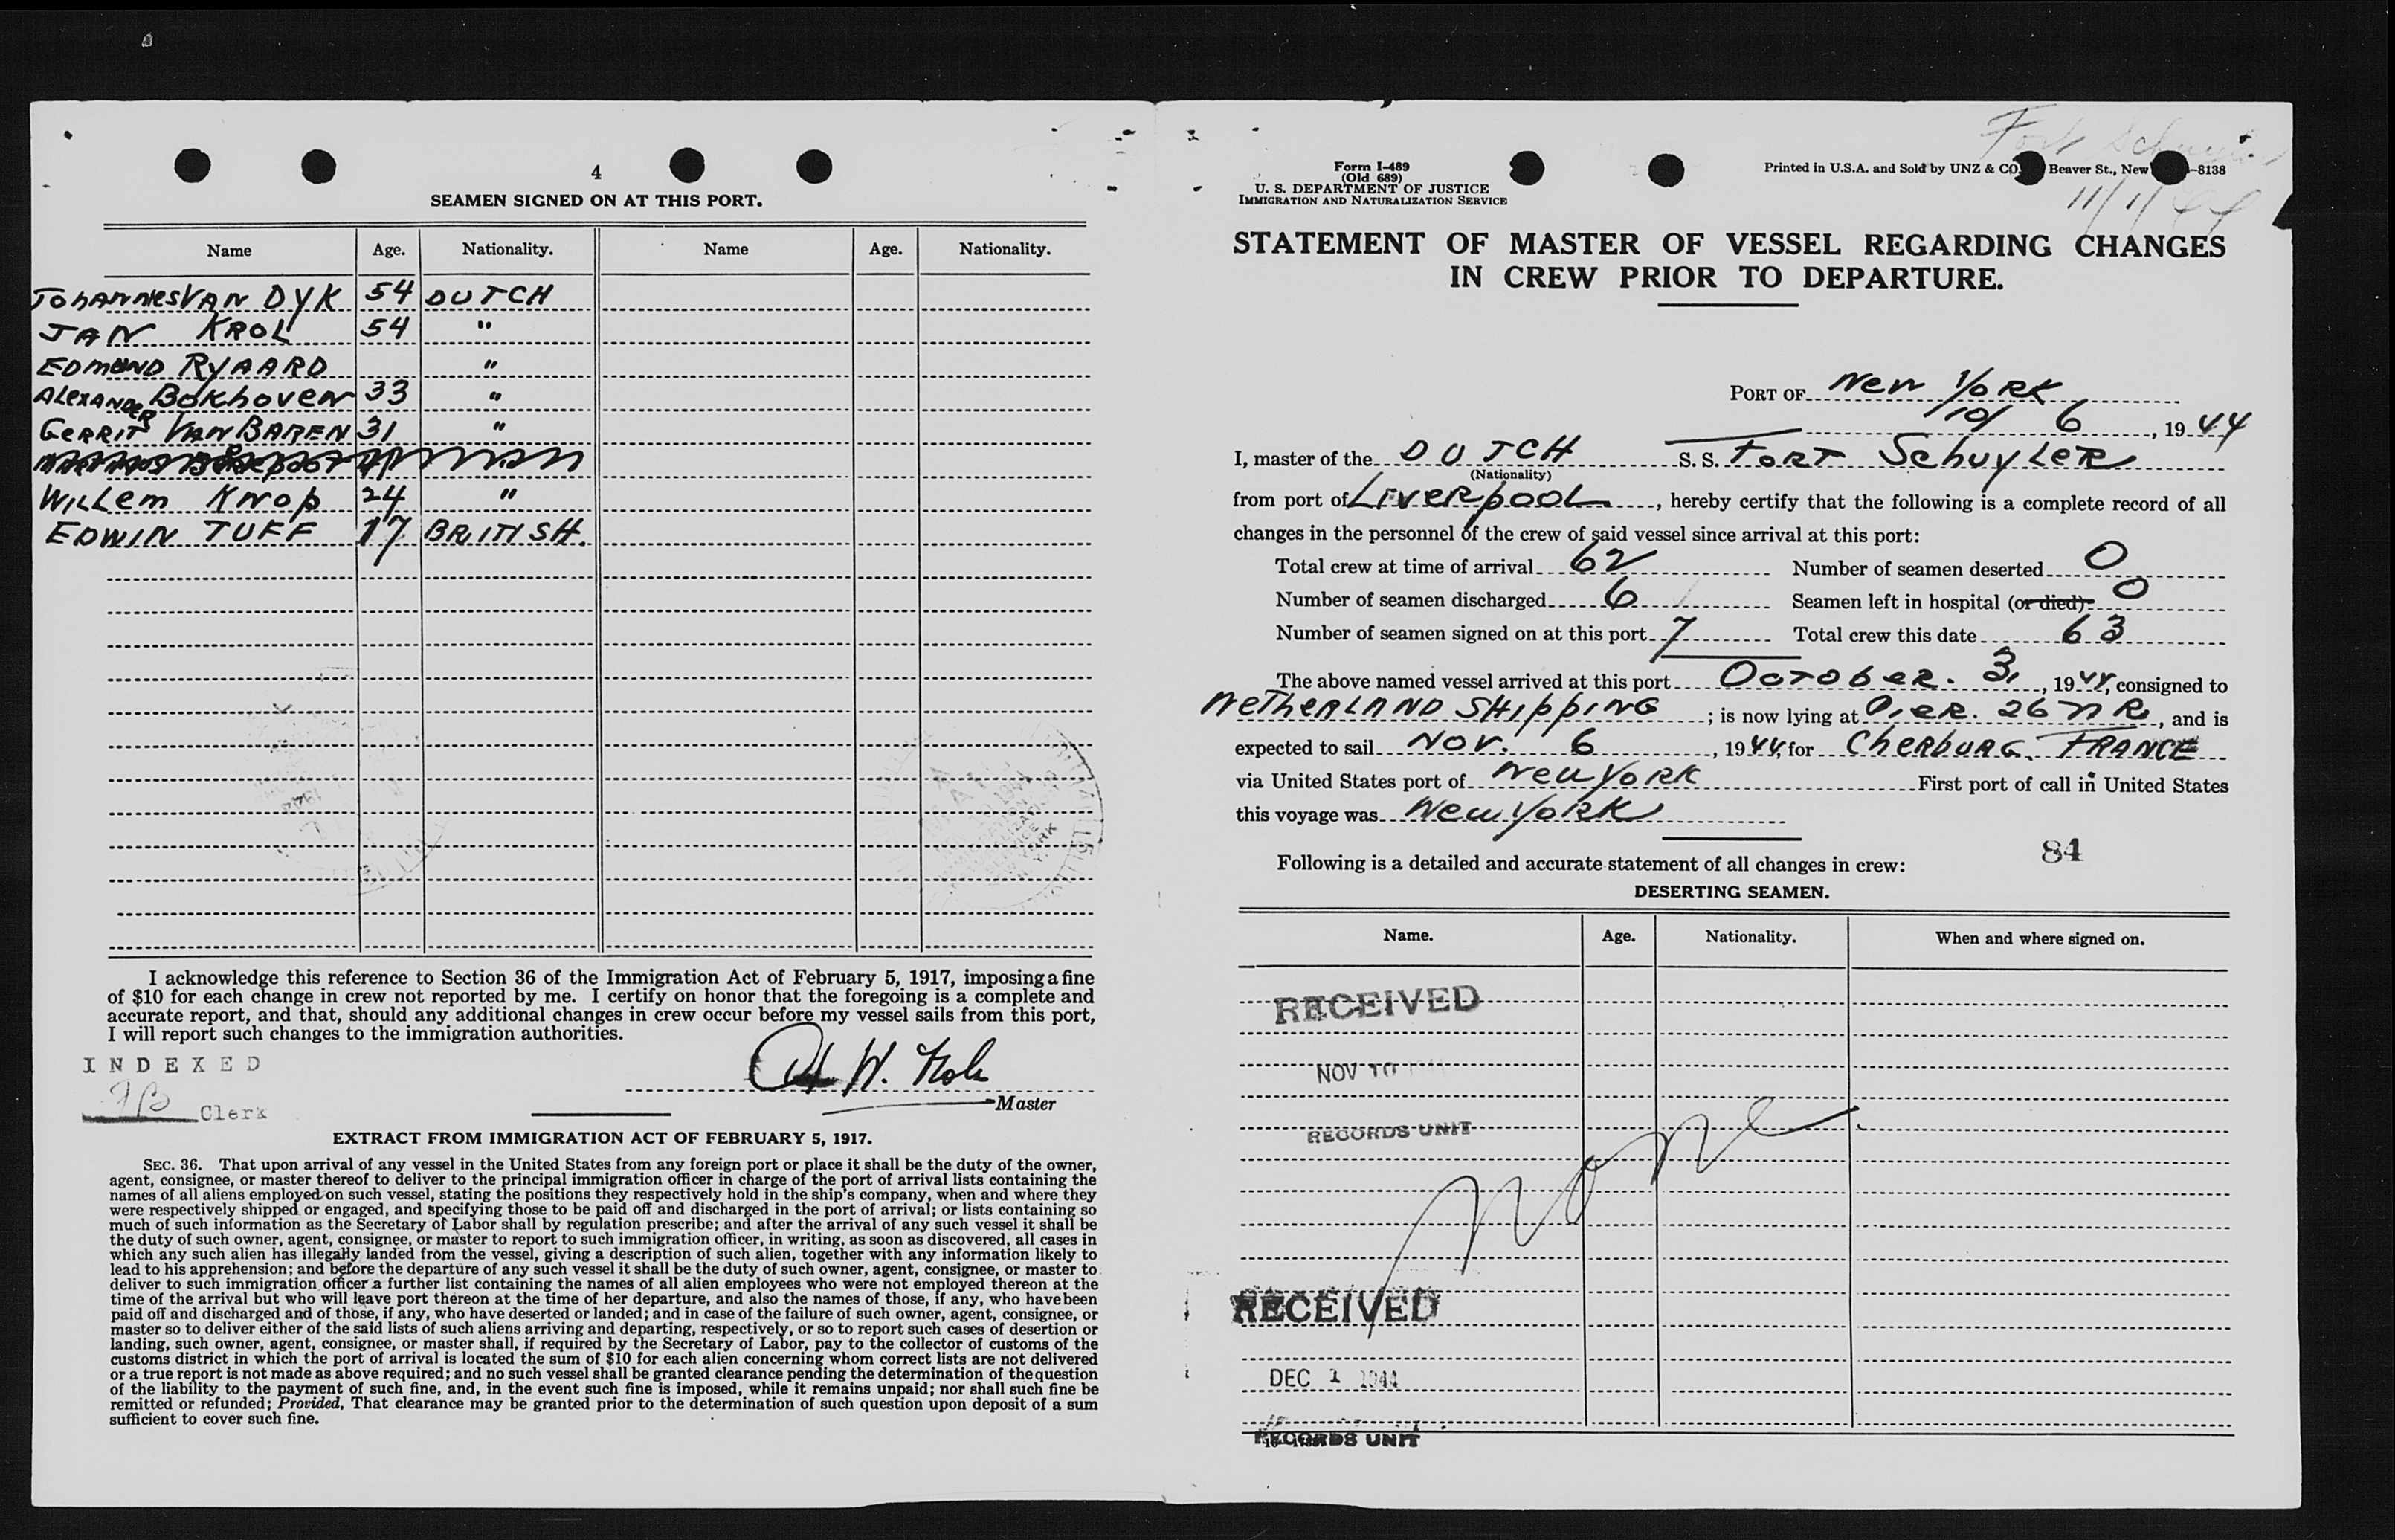 4
SEAMEN SIGNED ON AT THIS PORT.
Name Age. Nationality. Name Age. Nationality.
JOHANNES VAN DYK 54 DUTCH
JAN KROL 54 "
EDMUND RYAARD "
ALEXANDER BOKHOVEN 33 "
GERRIT VAN BAREN 31 "
WILLEM KNOP 24 "
EDWIN TUFF 17 BRITISH.
I acknowledge this reference to Section 36 of the Immigration Act of February 5, 1917, imposing a fine
of $10 for each change in crew not reported by me. I certify on honor that the foregoing is a complete and
accurate report, and that, should any additional changes in crew occur before my vessel sails from this port,
I will report such changes to the immigration authorities.
INDEXED
Clerk
Master
EXTRACT FROM IMMIGRATION ACT OF FEBRUARY 5, 1917.
SEC. 36. That upon arrival of any vessel in the United States from any foreign port or place it shall be the duty of the owner,
agent, consignee, or master thereof to deliver to the principal immigration officer in charge of the port of arrival lists containing the
names of all aliens employed on such vessel, stating the positions they respectively hold in the ship's company, when and where they
were respectively shipped or engaged, and specifying those to be paid off and discharged in the port of arrival; or lists containing so
much of such information as the Secretary of Labor shall by regulation prescribe; and after the arrival of any such vessel it shall be
the duty of such owner, agent, consignee, or master to report to such immigration officer, in writing, as soon as discovered, all cases in
which any such alien has illegally landed from the vessel, giving a description of such alien, together with any information likely to
lead to his apprehension; and before the departure of any such vessel it shall be the duty of such owner, agent, consignee, or master to
deliver to such immigration officer a further list containing the names of all alien employees who were not employed thereon at the
time of the arrival but who will leave port thereon at the time of her departure, and also the names of those, if any, who have been
paid off and discharged and of those, if any, who have deserted or landed; and in case of the failure of such owner, agent, consignee, or
master so to deliver either of the said lists of such aliens arriving and departing, respectively, or so to report such cases of desertion or
landing, such owner, agent, consignee, or master shall, if required by the Secretary of Labor, pay to the collector of customs of the
customs district in which the port of arrival is located the sum of $10 for each alien concerning whom correct lists are not delivered
or a true report is not made as above required; and no such vessel shall be granted clearance pending the determination of the question
of the liability to the payment of such fine, and, in the event such fine is imposed, while it remains unpaid; nor shall such fine be
remitted or refunded; Provided, That clearance may be granted prior to the determination of such question upon deposit of a sum
sufficient to cover such fine.
Form I-489
(Old 689)
U. S. DEPARTMENT OF JUSTICE
IMMIGRATION AND NATURALIZATION SERVICE
Printed in U.S.A. and Sold by UNZ & CO. Beaver St., New -8138
11/1/44
STATEMENT OF MASTER OF VESSEL REGARDING CHANGES
IN CREW PRIOR TO DEPARTURE.
PORT OF New YORK
10/ 6, 1944
I, master of the DUTCH S. S. FORT SchuyLeR
(Nationality)
from port of LIVERpOOL, hereby certify that the following is a complete record of all
changes in the personnel of the crew of said vessel since arrival at this port:
Total crew at time of arrival 62 Number of seamen deserted 0
Number of seamen discharged 6 Seamen left in hospital (or died) 0
Number of seamen signed on at this port 7 Total crew this date 63
The above named vessel arrived at this port OCTOBER. 3, 1944, consigned to
NETHERLAND SHIPPING; is now lying at PIER. 26 N R, and is
expected to sail NOV. 6, 1944, for CHERBURG. FRANCE
via United States port of New YORK First port of call in United States
this voyage was New YORK
84
Following is a detailed and accurate statement of all changes in crew:
DESERTING SEAMEN.
Name. Age. Nationality. When and where signed on.
RECEIVED
NOV 10
RECORDS UNIT
None
RECEIVED
DEC 1 1944
RECORDS UNIT